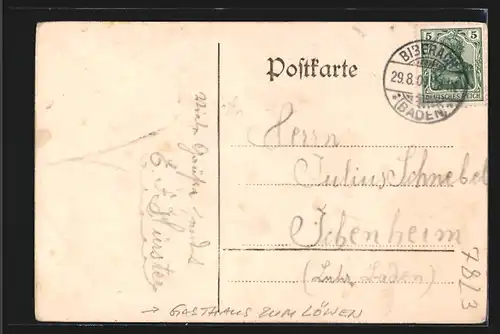 Postkarte
5 5
DEUTSCHES REICH
BIBERACH
29.8.0
(BADEN)
Herrn
Julius Schnebel
Ichenheim
(Lahr, Baden)
Viele Grüße
→ GASTHAUS ZUM LÖWEN
7813